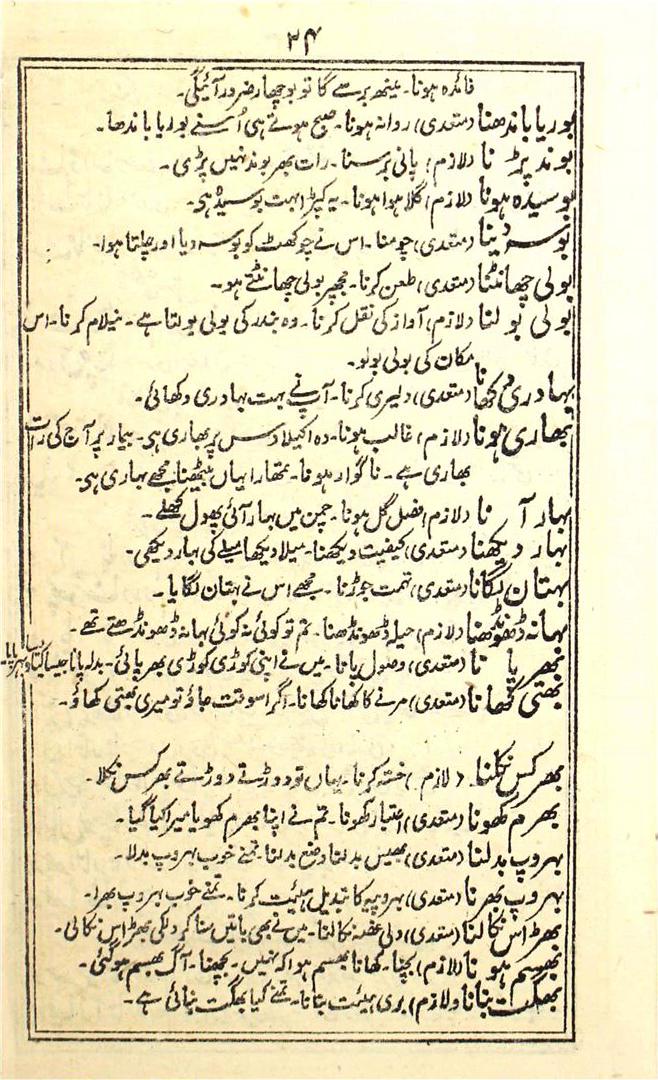 ۳۴
فائدہ ہونا۔ مینھ برسے گا تو بوچھار ضرور آئیگی۔
بوریا باندھنا (متعدی) روانہ ہونا۔ صبح ہوتے ہی اُسنے بوریا باندھا۔
بوند پڑنا (لازم) پانی برسنا۔ رات بھر بوند نہیں پڑی۔
بوسیدہ ہونا (لازم) گلا ہوا ہونا۔ یہ کپڑا بہت بوسیدہ ہی۔
بوسہ دینا (متعدی) چومنا۔ اس نے چوکھٹ کو بوسہ دیا اور چلتا ہوا۔
بولی چھانٹنا (متعدی) طعن کرنا۔ مجھپر بولی چھانٹتے ہو۔
بولی بولنا (لازم) آواز کی نقل کرنا۔ وہ بندر کی بولی بولتا ہے۔ نیلام کرنا۔ اس
مکان کی بولی بولو۔
بہادری دکھانا (متعدی) دلیری کرنا۔ آپ نے بہت بہادری دکھائی۔
بھاری ہونا (لازم) غالب ہونا۔ وہ اکیلا دس پر بھاری ہی۔ بیمار پر آج کی رات
بھاری ہے۔ ناگوار ہونا۔ تمھارا یہاں بیٹھنا مجھے بھاری ہی۔
بہار آنا (لازم) فصل گل ہونا۔ چمن میں بہار آئی پھول کھلے۔
بہار دیکھنا (متعدی) کیفیت دیکھنا۔ میلا دیکھا میلے کی بہار دیکھی۔
بہتان لگانا (متعدی) تہمت جوڑنا۔ مجھے اس نے بہتان لگایا۔
بہانہ ڈھونڈھنا (لازم) حیلہ ڈھونڈھنا۔ تم تو کوئی نہ کوئی بہانہ ڈھونڈھتے تھے۔
بھر پانا (متعدی) وصول پانا۔ میں نے اپنی کوڑی کوڑی بھر پائی۔ بدلہ پانا جیسا کیا ویسا بھر پایا۔
بھتی کھانا (متعدی) مرنے کا کھانا کھانا۔ اگر اسوقت جاؤ تو میری بھتی کھاؤ۔
بھرکس نکلنا (لازم) خستہ کرنا۔ یہاں تو دوڑتے دوڑتے بھرکس نکلا۔
بھرم کھونا (متعدی) اعتبار کھونا۔ تم نے اپنا بھرم کھویا میرا کیا گیا۔
بہروپ بدلنا (متعدی) بھیس بدلنا وضع بدلنا۔ تمنے خوب بہروپ بدلا۔
بہروپ بھرنا (متعدی) بہروپیہ کا تبدیل ہیئت کرنا۔ تمنے خوب بہروپ بھرا۔
بھڑاس نکالنا (متعدی) دلی غصہ نکالنا۔ میں نے بھی باتیں سنا کر دلکی بھڑاس نکالی۔
بھسم ہونا (لازم) پچنا۔ کھانا بھسم ہوا کہ نہیں۔ بجھنا۔ آگ بھسم ہو گئی۔
بھگت بنانا (لازم) بری ہیئت بنانا۔ تمنے کیا بھگت بنائی ہے۔